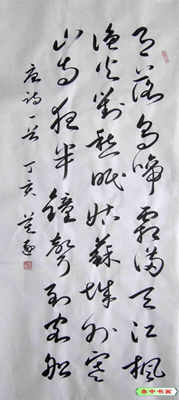 月落烏啼霜滿天江楓
漁火對愁眠姑蘇城外寒
山寺夜半鐘聲到客船
唐诗一首 丁亥